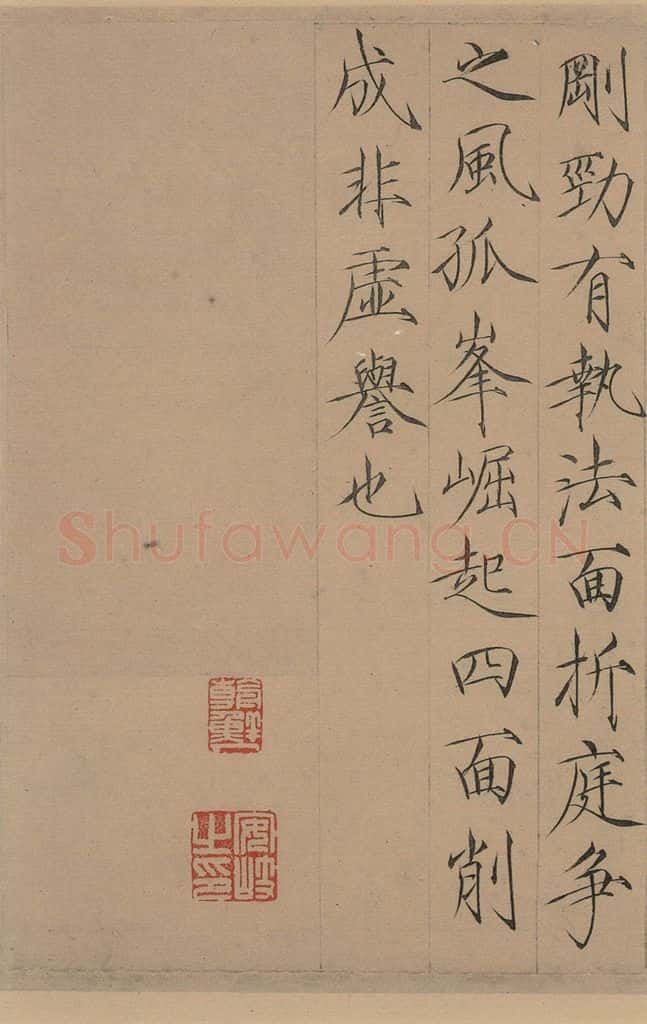 剛勁有執法面折庭争
之風孤峯崛起四面削
成非虛譽也
Shufawang.CN
安岐之印